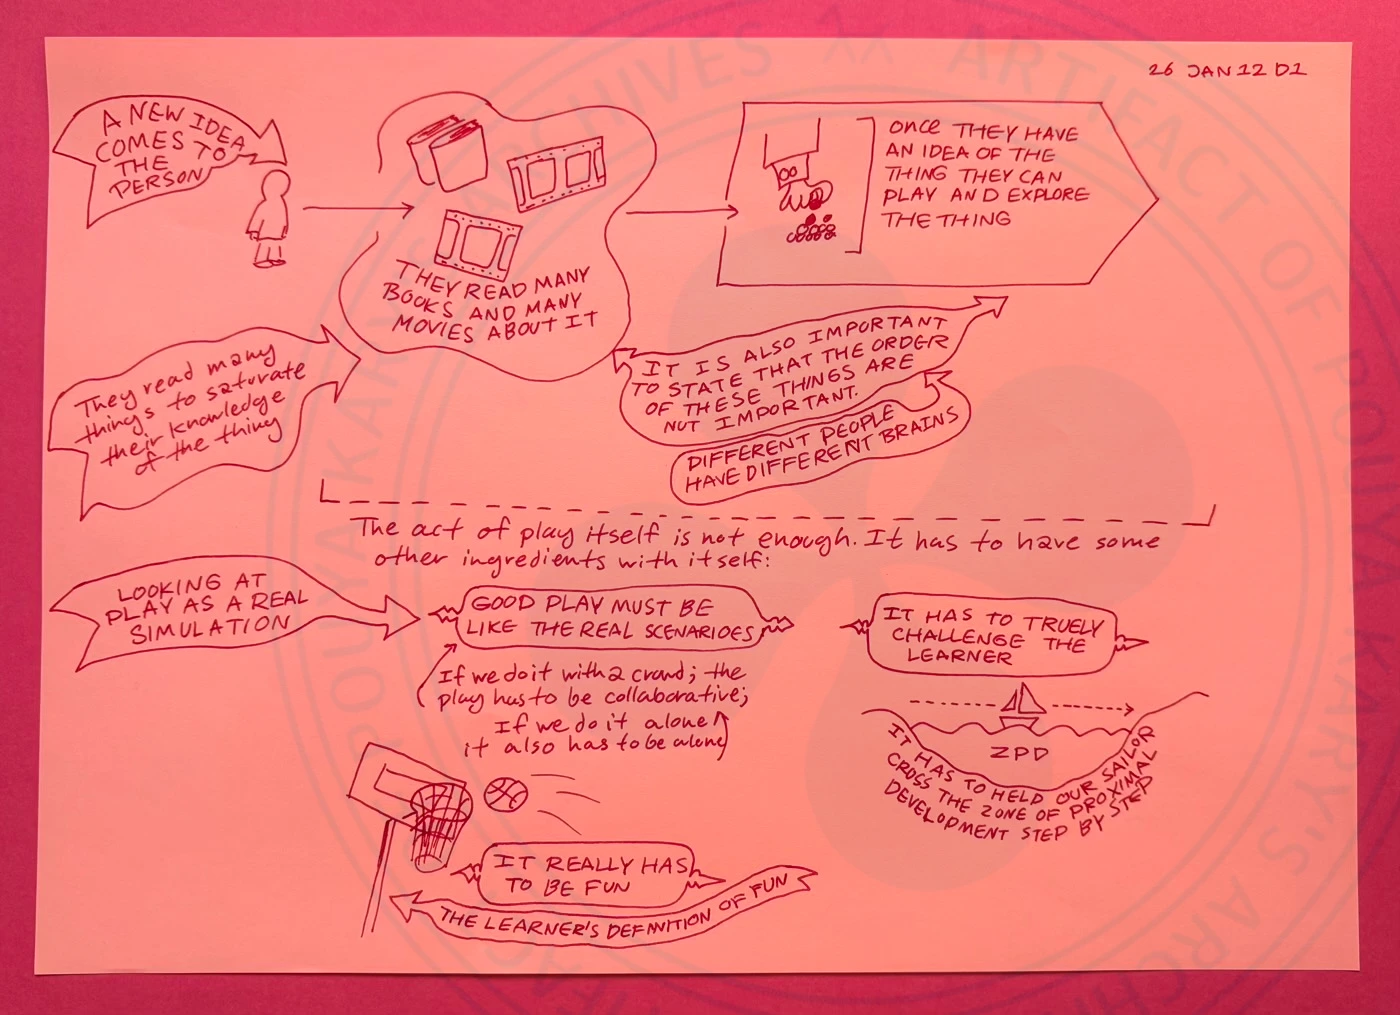 26 JAN 12 D1
A NEW IDEA
COMES TO
THE
PERSON
THEY READ MANY
BOOKS AND MANY
MOVIES ABOUT IT
ONCE THEY HAVE
AN IDEA OF THE
THING THEY CAN
PLAY AND EXPLORE
THE THING
They read many
things to saturate
their knowledge
of the thing
IT IS ALSO IMPORTANT
TO STATE THAT THE ORDER
OF THESE THINGS ARE
NOT IMPORTANT.
DIFFERENT PEOPLE
HAVE DIFFERENT BRAINS
The act of play itself is not enough. It has to have some
other ingredients with itself:
LOOKING AT
PLAY AS A REAL
SIMULATION
GOOD PLAY MUST BE
LIKE THE REAL SCENARIOES
If we do it with a crowd; the
play has to be collaborative;
If we do it alone
it also has to be alone
IT HAS TO TRUELY
CHALLENGE THE
LEARNER
ZPD
IT HAS TO HELD OUR SAILOR
CROSS THE ZONE OF PROXIMAL
DEVELOPMENT STEP BY STEP
IT REALLY HAS
TO BE FUN
THE LEARNER'S DEFINITION OF FUN
ARTIFACT OF POUYA KARY'S ARCHIVES
POUYA KARY'S ARCHIVES